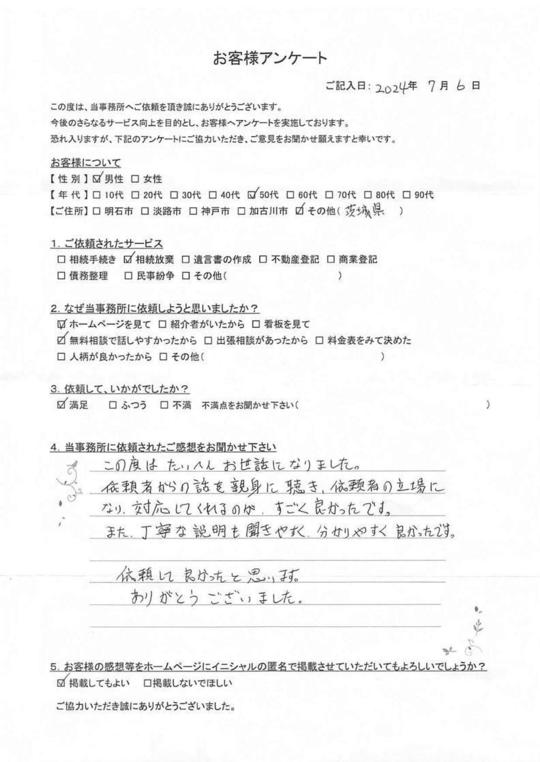 お客様アンケート
ご記入日: 2024年 7月 6日
この度は、当事務所へご依頼を頂き誠にありがとうございます。
今後のさらなるサービス向上を目的とし、お客様へアンケートを実施しております。
恐れ入りますが、下記のアンケートにご協力いただき、ご意見をお聞かせ願えますと幸いです。
お客様について
【性別】☑男性 □女性
【年代】□10代 □20代 □30代 □40代 ☑50代 □60代 □70代 □80代 □90代
【ご住所】□明石市 □淡路市 □神戸市 □加古川市 ☑その他(茨城県 )
1. ご依頼されたサービス
□相続手続き ☑相続放棄 □遺言書の作成 □不動産登記 □商業登記
□債務整理 □民事紛争 □その他( )
2. なぜ当事務所に依頼しようと思いましたか?
☑ホームページを見て □紹介者がいたから □看板を見て
☑無料相談で話しやすかったから □出張相談があったから □料金表をみて決めた
□人柄が良かったから □その他( )
3. 依頼して、いかがでしたか?
☑満足 □ふつう □不満 不満点をお聞かせ下さい( )
4. 当事務所に依頼されたご感想をお聞かせ下さい
この度は たいへん お世話になりました。
依頼者からの話を親身に聴き、依頼者の立場に
なり、対応してくれるのが、すごく良かったです。
また、丁寧な説明も聞きやすく、分かりやすく良かったです。
依頼して良かったと思います。
ありがとうございました。
5. お客様の感想等をホームページにイニシャルの匿名で掲載させていただいてもよろしいでしょうか?
☑掲載してもよい □掲載しないでほしい
ご協力いただき誠にありがとうございました。